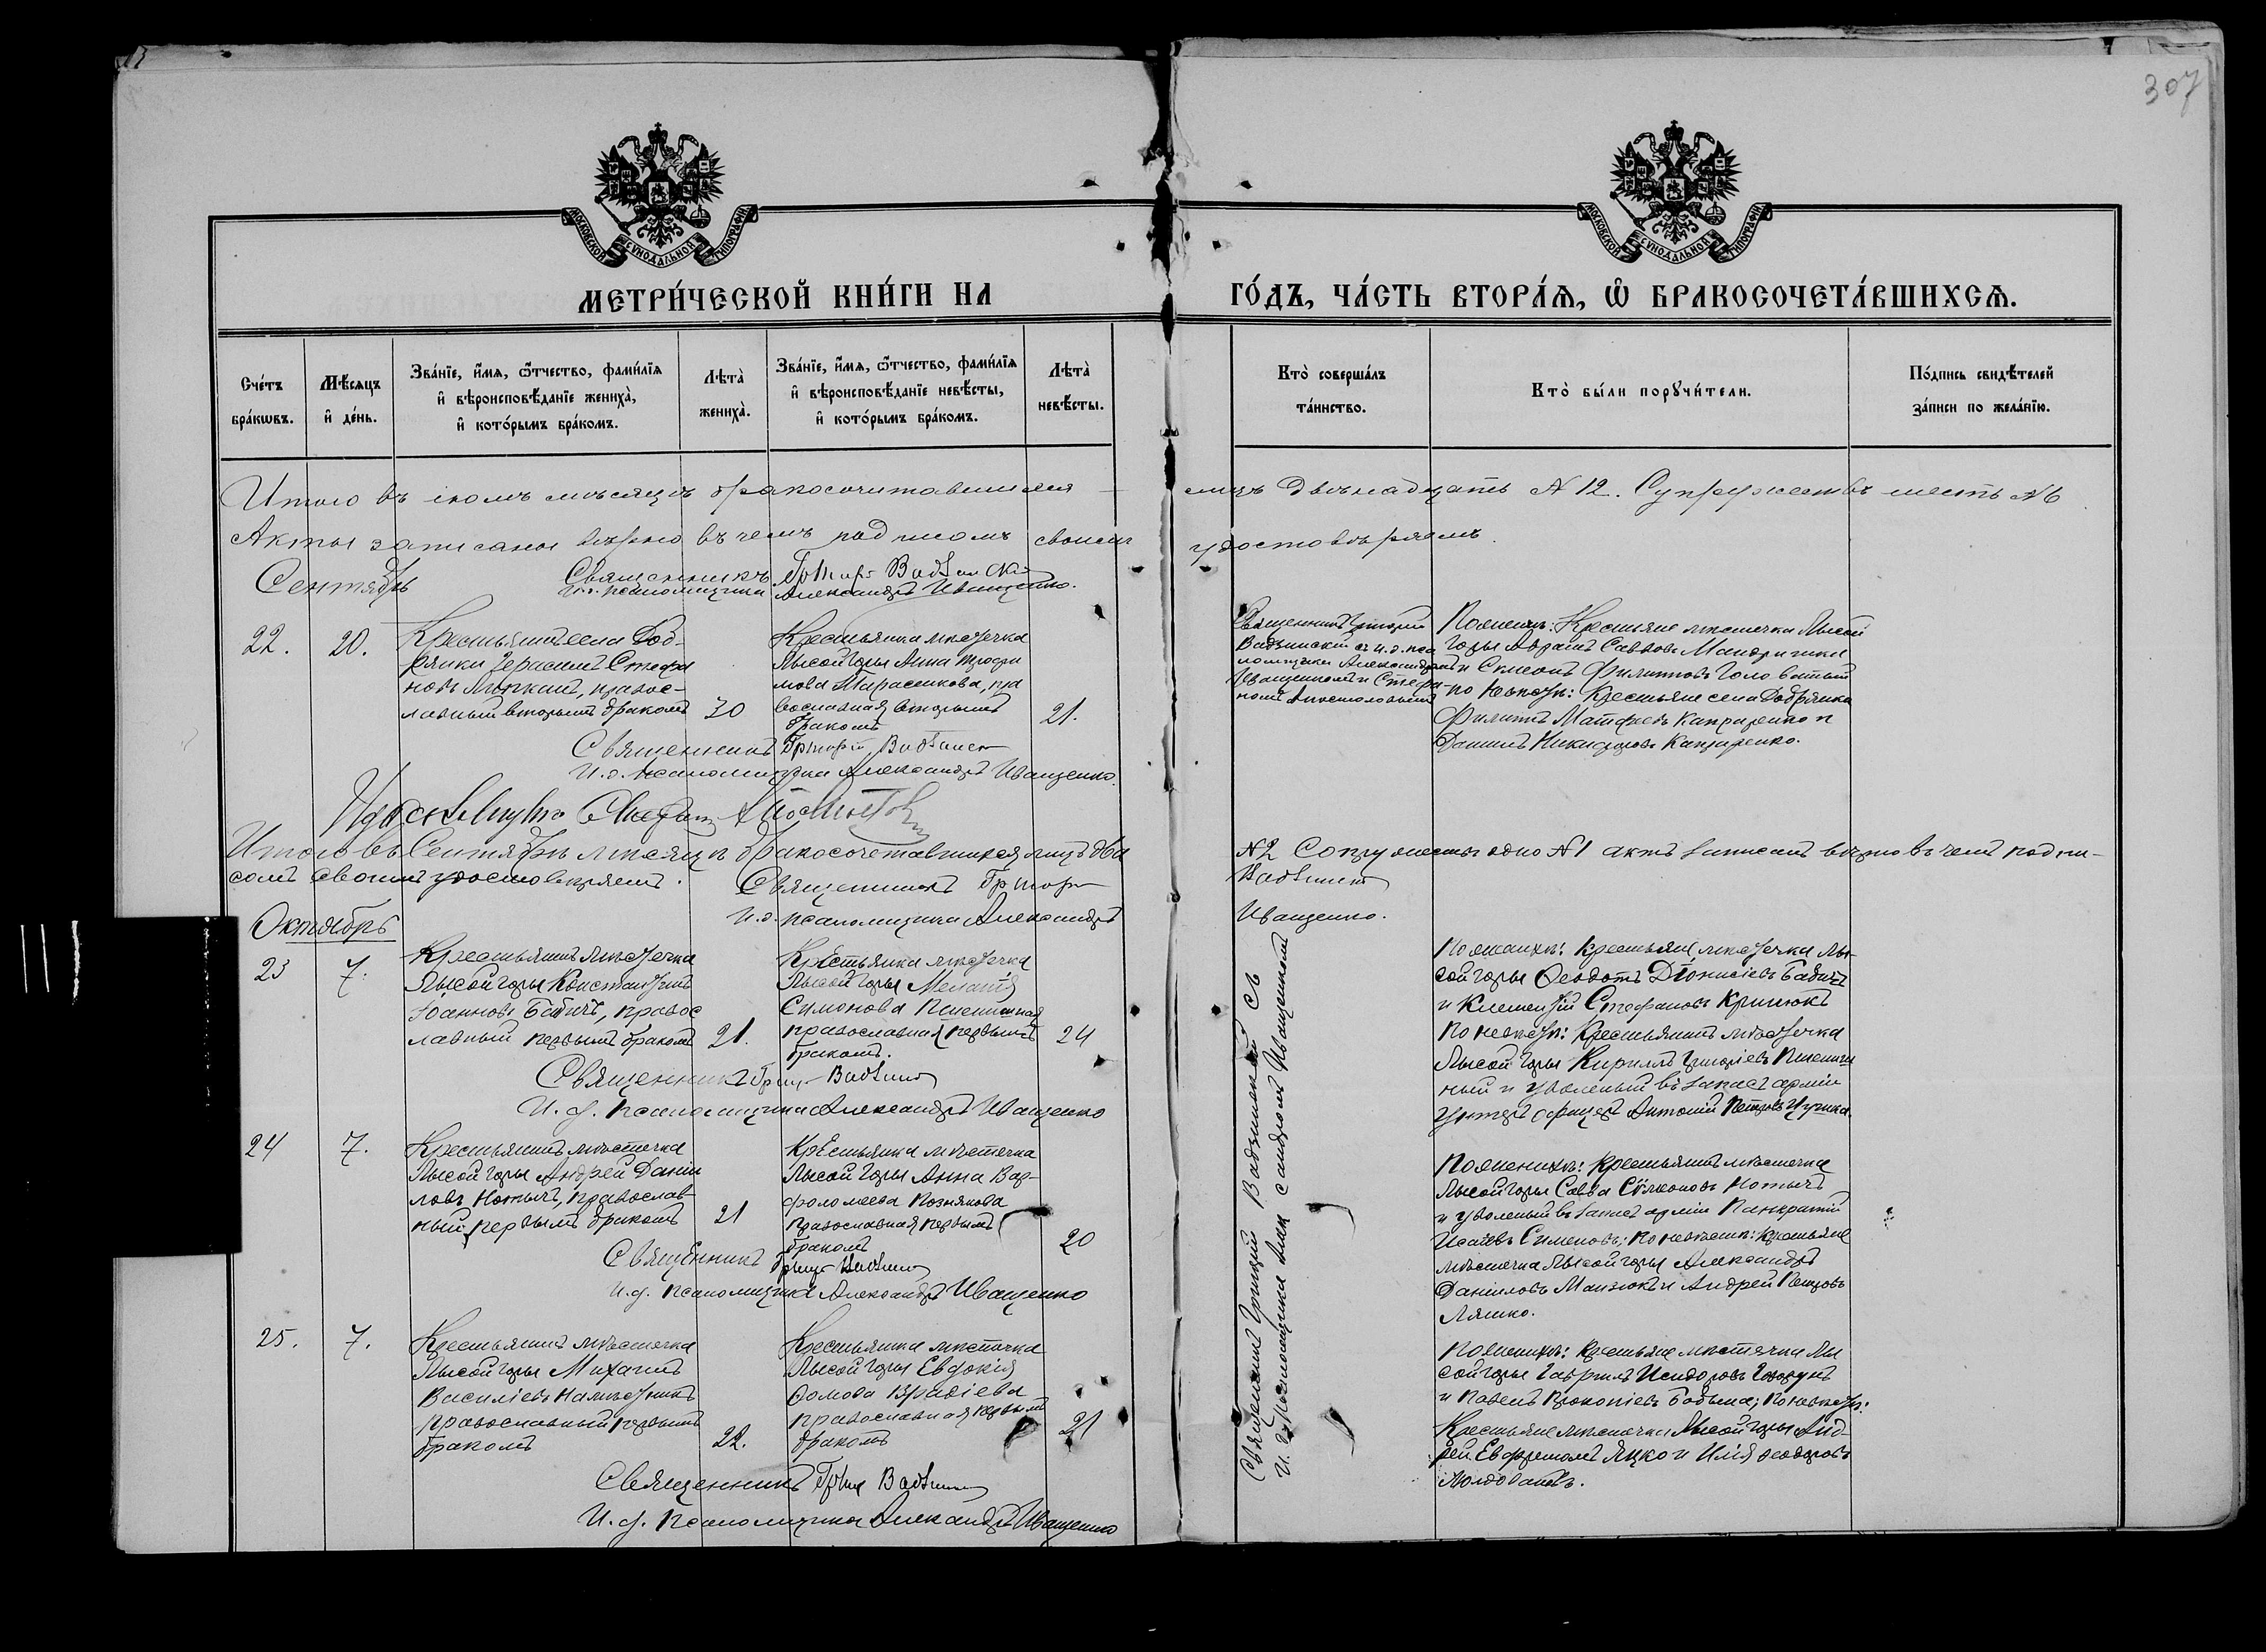 307
МОСКОВСКОЙ СУНОДАЛЬНОЙ ТИПОГРАФІИ
МОСКОВСКОЙ СУНОДАЛЬНОЙ ТИПОГРАФІИ
МЕТРИ́ЧЕСКОЙ КНИ́ГИ НА
ГО́ДЪ, ЧА́СТЬ ВТОРА́Я, Ѽ БРАКОСОЧЕТА́ВШИХСЯ.
Сче́тъ
бра́кѡвъ.
Мѣ́сяцъ
и҆ де́нь.
Зва́нїе, и҆́мя, ѻ҆́тчество, фами́лїя
и҆ вѣроисповѣ́данїе жениха̀,
и҆ кото́рымъ бра́комъ.
Лѣта̀
жениха̀.
Зва́нїе, и҆́мя, ѻ҆́тчество, фами́лїя
и҆ вѣроисповѣ́данїе невѣ́сты,
и҆ кото́рымъ бра́комъ.
Лѣта̀
невѣ́сты.
Кто̀ соверша́лъ
та́инство.
Кто̀ бы́ли порꙋчи́тели.
По́дпись свидѣ́телей
за́писи по жела́нїю.
Итого въ мѣсяцѣ бракосочитавшихся лицъ двѣнадцать N 12. Супружествъ шесть N 6
Акты записаны вѣрно въ чемъ подписомъ своимъ удостовѣряемъ.
Сентябрь
Священникъ Григорій
И.о. псаломщика Александръ Иващенко.
22.
20.
Крестьянинъ села Доб-
рянки Герасимъ Стефа
новъ, правос-
лавный вторымъ бракомъ
30
Крестьянка мѣстечка
Лысой Горы Анна Трофи
мова Тарасенкова, пра
вославная вторымъ
бракомъ
21.
Священникъ Григорій
Вадзинскій съ и.о. пса
ломщика Александромъ
Иващенкомъ и Стефа-
номъ Апостоловымъ
По женихѣ: Крестьяне мѣстечка Лысой
Горы Абрамъ Саввовъ Мандригина
и Симеонъ Филиповъ Головатый
по невѣстѣ: Крестьяне села Добрянка
Филиппъ Матфеевъ Капрыренко и
Даніилъ Никифоровъ
Священникъ Григорій
И.о. псаломщика Александръ Иващенко.
Итого въ Сентябрѣ мѣсяцѣ бракосочетавшихся лицъ два
N 2 Сопружествъ одно N 1 актъ записанъ вѣрно въ чемъ подпи-
сомъ своимъ удостовѣряемъ.
Священникъ Григорій
И.о. псаломщика Александръ
Иващенко.
Октябрь
23
7.
Крестьянинъ мѣстечка
Лысой горы Константинъ
Іоанновъ Бабичъ, правос
лавный первымъ бракомъ
21.
Крестьянка мѣстечка
Лысой Горы Меланія
Симонова Пшеничная
православная первымъ
бракомъ.
24
Священникъ Григорій Вадзинскій съ
и.о. псаломщика Александромъ Иващенкомъ
По женихѣ: Крестьяне мѣстечка Лы-
сой горы Ѳеодотъ Діонисіевъ Бабичъ
и Климентій Стефановъ Кринюкъ
По невѣстѣ: Крестьянинъ мѣстечка
Лысой Горы Кириллъ Григоріевъ Пшенич
ный и уволеный въ запасъ арміи
унтеръ офицеръ Антоній Петровъ
Священникъ
И.о. псаломщика Александръ Иващенко
24
7.
Крестьянинъ мѣстечка
Лысой Горы Андрей Даніи
ловъ Нотычъ, православ-
ный первымъ бракомъ
21
Крестьянка мѣстечка
Лысой Горы Анна Вар-
фоломеева Познякова
православная первымъ
бракомъ
20
По женихѣ: Крестьянинъ мѣстечка
Лысой Горы Савва Симоновъ Нотычъ
и уволеный въ запасъ арміи Панкратій
Исаіевъ Сименовъ; По невѣстѣ: Крестьяне
мѣстечка Лысой Горы Александръ
Даніиловъ Манзюкъ и Андрей Петровъ
Ляшко.
Священникъ
И.о. псаломщика Александръ Иващенко
25.
7.
Крестьянинъ мѣстечка
Лысой Горы Михаилъ
Василіевъ Намѣстникъ
православный первымъ
бракомъ
22.
Крестьянка мѣстечка
Лысой Горы Евдокія
Ѳомова Врадіева
православная первымъ
бракомъ
21
По женихѣ: Крестьяне мѣстечка Лы
сой Горы Гавріилъ Исидоровъ
и Павелъ Прокопіевъ; По невѣстѣ:
Крестьяне мѣстечка Лысой Горы Анд-
рей Евфремовъ Яцко и Илія Ѳеодоровъ
Молдовановъ.
Священникъ
И.о. псаломщика Александръ Иващенко